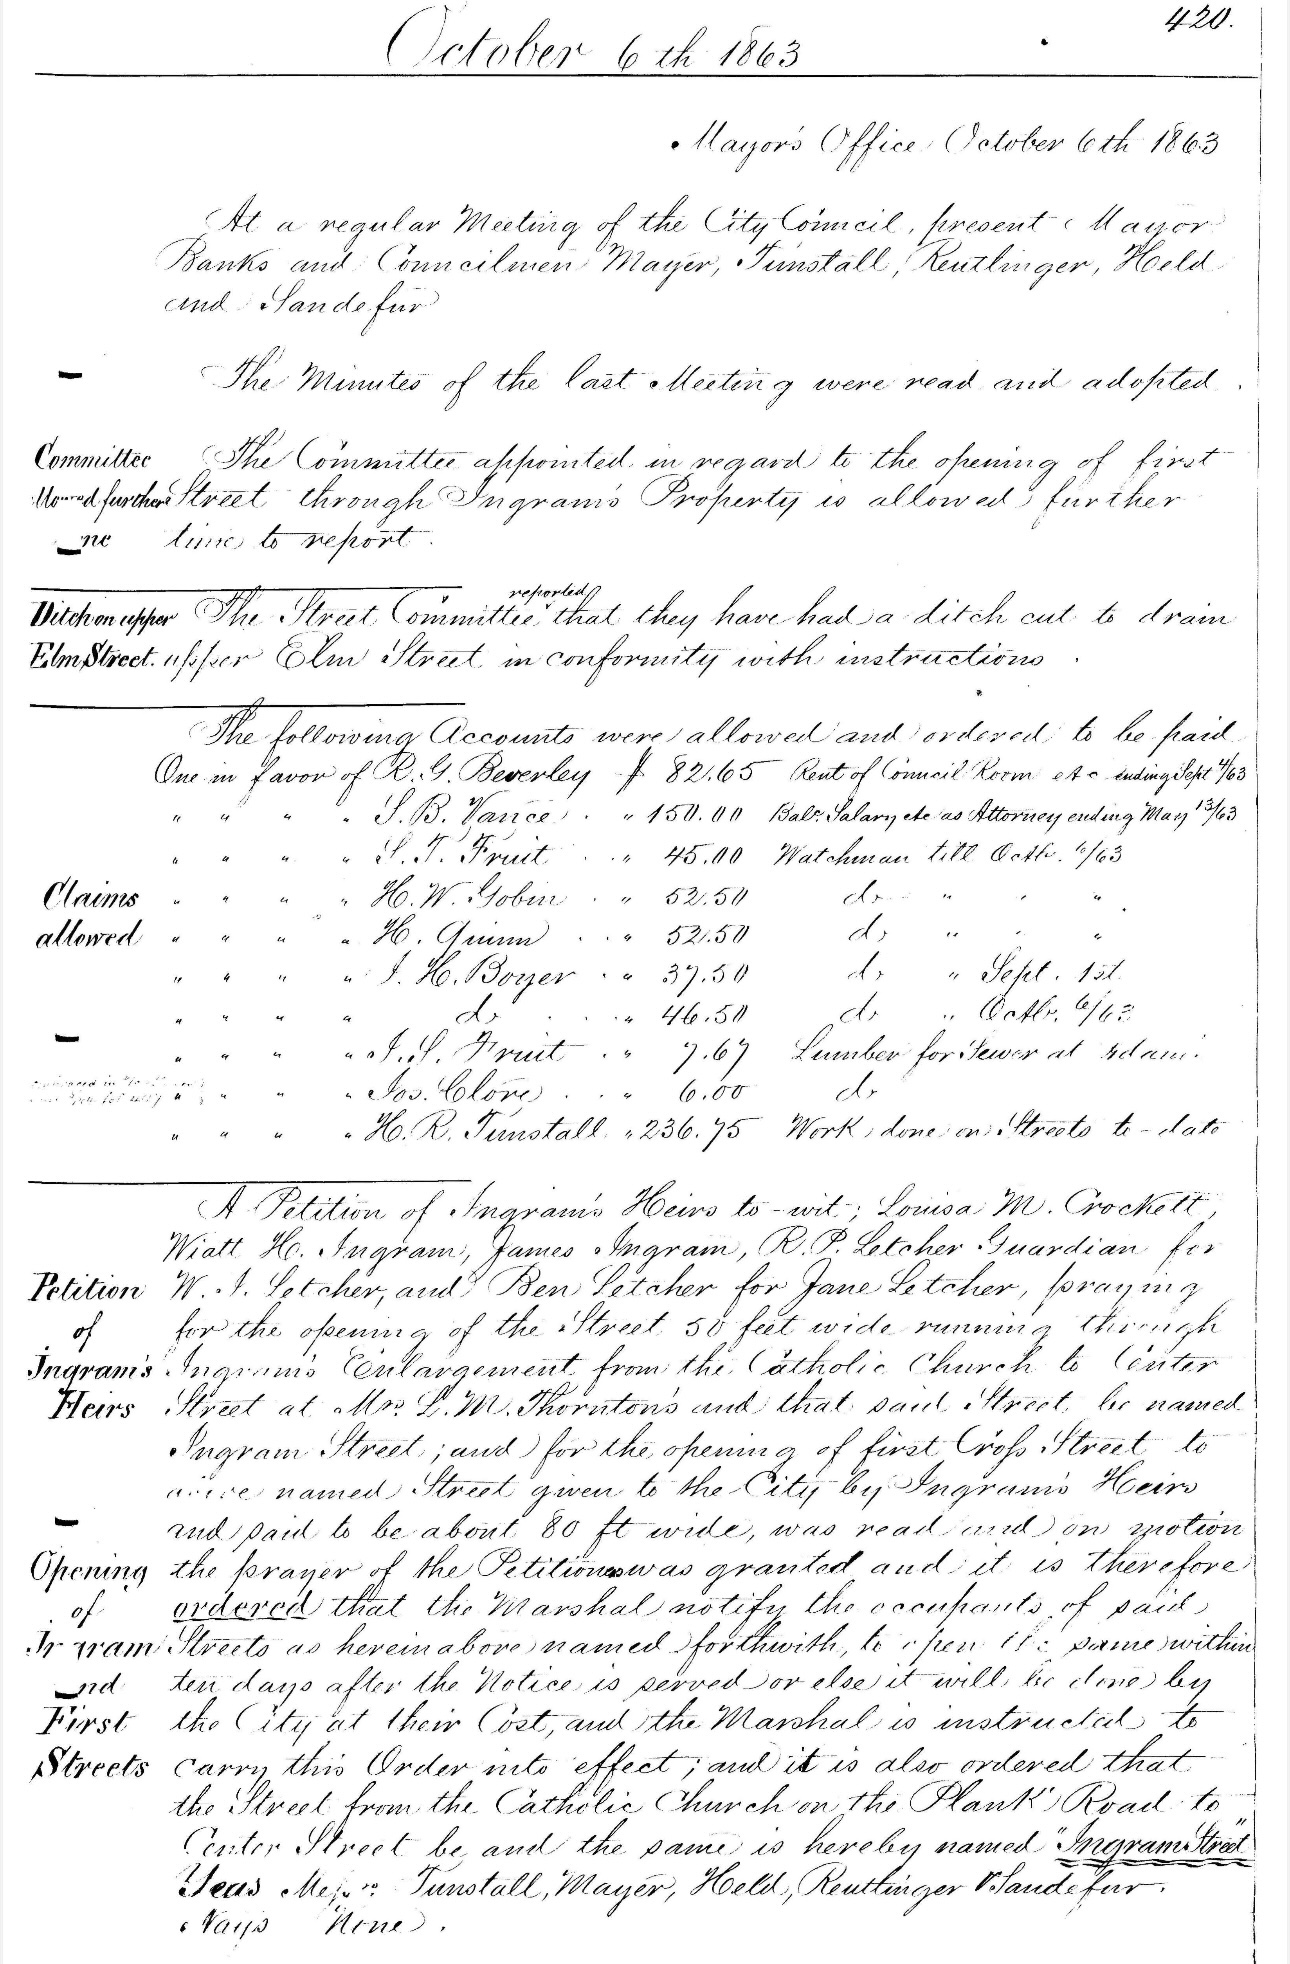 420.
October 6th 1863
Mayor's Office October 6th 1863
At a regular Meeting of the City Council, present Mayor
Banks and Councilmen Mayer, Tunstall, Reutlinger, Held
and Sandefur
The Minutes of the last Meeting were read and adopted.
Committee The Committee appointed in regard to the opening of first
further Street through Ingram's Property is allowed further
time to report.
Ditch on upper The Street Committee reported that they have had a ditch cut to drain
Elm Street. upper Elm Street in conformity with instructions.
The following Accounts were allowed and ordered to be paid
One in favor of R. G. Beverley $ 82.65 Rent of Council Room etc ending Sept 4/63
" " " " S. B. Vance . " 150.00 Balc. Salary etc as Attorney ending May 13/63
" " " " S. T. Fruit . . " 45.00 Watchman till Octbr. 6/63
Claims " " " " H. W. Gobin . " 52.50 do " " "
allowed " " " " H. Quinn . . " 52.50 do " " "
" " " " J. H. Boyer . " 37.50 do " Sept. 1st.
" " " " do . . " 46.50 do " Octbr. 6/63
" " " " J. S. Fruit . " 7.67 Lumber for Sewer at
" " " " Jos. Clore . . " 6.00 do
" " " " H. R. Tunstall " 236.75 Work done on Streets to-date
A Petition of Ingram's Heirs to-wit; Louisa M. Crockett,
Wiatt H. Ingram, James Ingram, R. P. Letcher Guardian for
Petition W. J. Letcher, and Ben Letcher for Jane Letcher, praying
of for the opening of the Street 50 feet wide running through
Ingram's Ingram's Enlargement from the Catholic Church to Center
Heirs Street at Mrs. L. M. Thornton's and that said Street be named
Ingram Street; and for the opening of first Cross Street to
above named Street given to the City by Ingram's Heirs
and said to be about 80 ft wide, was read and on motion
Opening the prayer of the Petitioners was granted and it is therefore
of ordered that the Marshal notify the occupants of said
Ingram Streets as hereinabove named forthwith, to open the same within
and ten days after the Notice is served or else it will be done by
First the City at their Cost, and the Marshal is instructed to
Streets carry this Order into effect; and it is also ordered that
the Street from the Catholic Church on the Plank Road to
Center Street be and the same is hereby named "Ingram Street"
Yeas Messrs. Tunstall, Mayer, Held, Reutlinger & Sandefur.
Nays None.